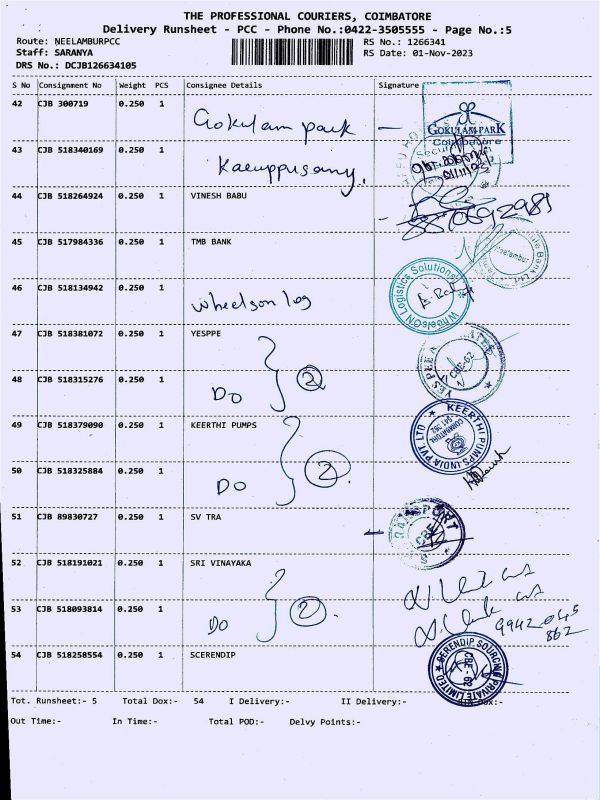 THE PROFESSIONAL COURIERS, COIMBATORE
Delivery Runsheet - PCC - Phone No.:0422-3505555 - Page No.:5
Route: NEELAMBURPCC
RS No.: 1266341
Staff: SARANYA
RS Date: 01-Nov-2023
DRS No.: DCJB126634105
S No Consignment No Weight PCS Consignee Details Signature
42 CJB 300719 0.250 1 Gokulam park
GOKULAM PARK
Coimbatore
43 CJB 518340169 0.250 1 Karuppusamy.
44 CJB 518264924 0.250 1 VINESH BABU
8870692989
45 CJB 517984336 0.250 1 TMB BANK
Neelambur
46 CJB 518134942 0.250 1 Wheelson log
WheelsON Logistics Solutions
47 CJB 518381072 0.250 1 YESPPE
48 CJB 518315276 0.250 1 DO 2
CBE-62
49 CJB 518379090 0.250 1 KEERTHI PUMPS
KEERTHI PUMPS INDIA PVT LTD
50 CJB 518325884 0.250 1 DO 2
51 CJB 89830727 0.250 1 SV TRA
CBE
52 CJB 518191021 0.250 1 SRI VINAYAKA
53 CJB 518093814 0.250 1 DO 2
9942045
862
54 CJB 518258554 0.250 1 SCERENDIP
SERENDIP SOURCING PRIVATE LIMITED
CBE-62
Tot. Runsheet:- 5 Total Dox:- 54 I Delivery:- II Delivery:- UN Dox:-
Out Time:- In Time:- Total POD:- Delvy Points:-